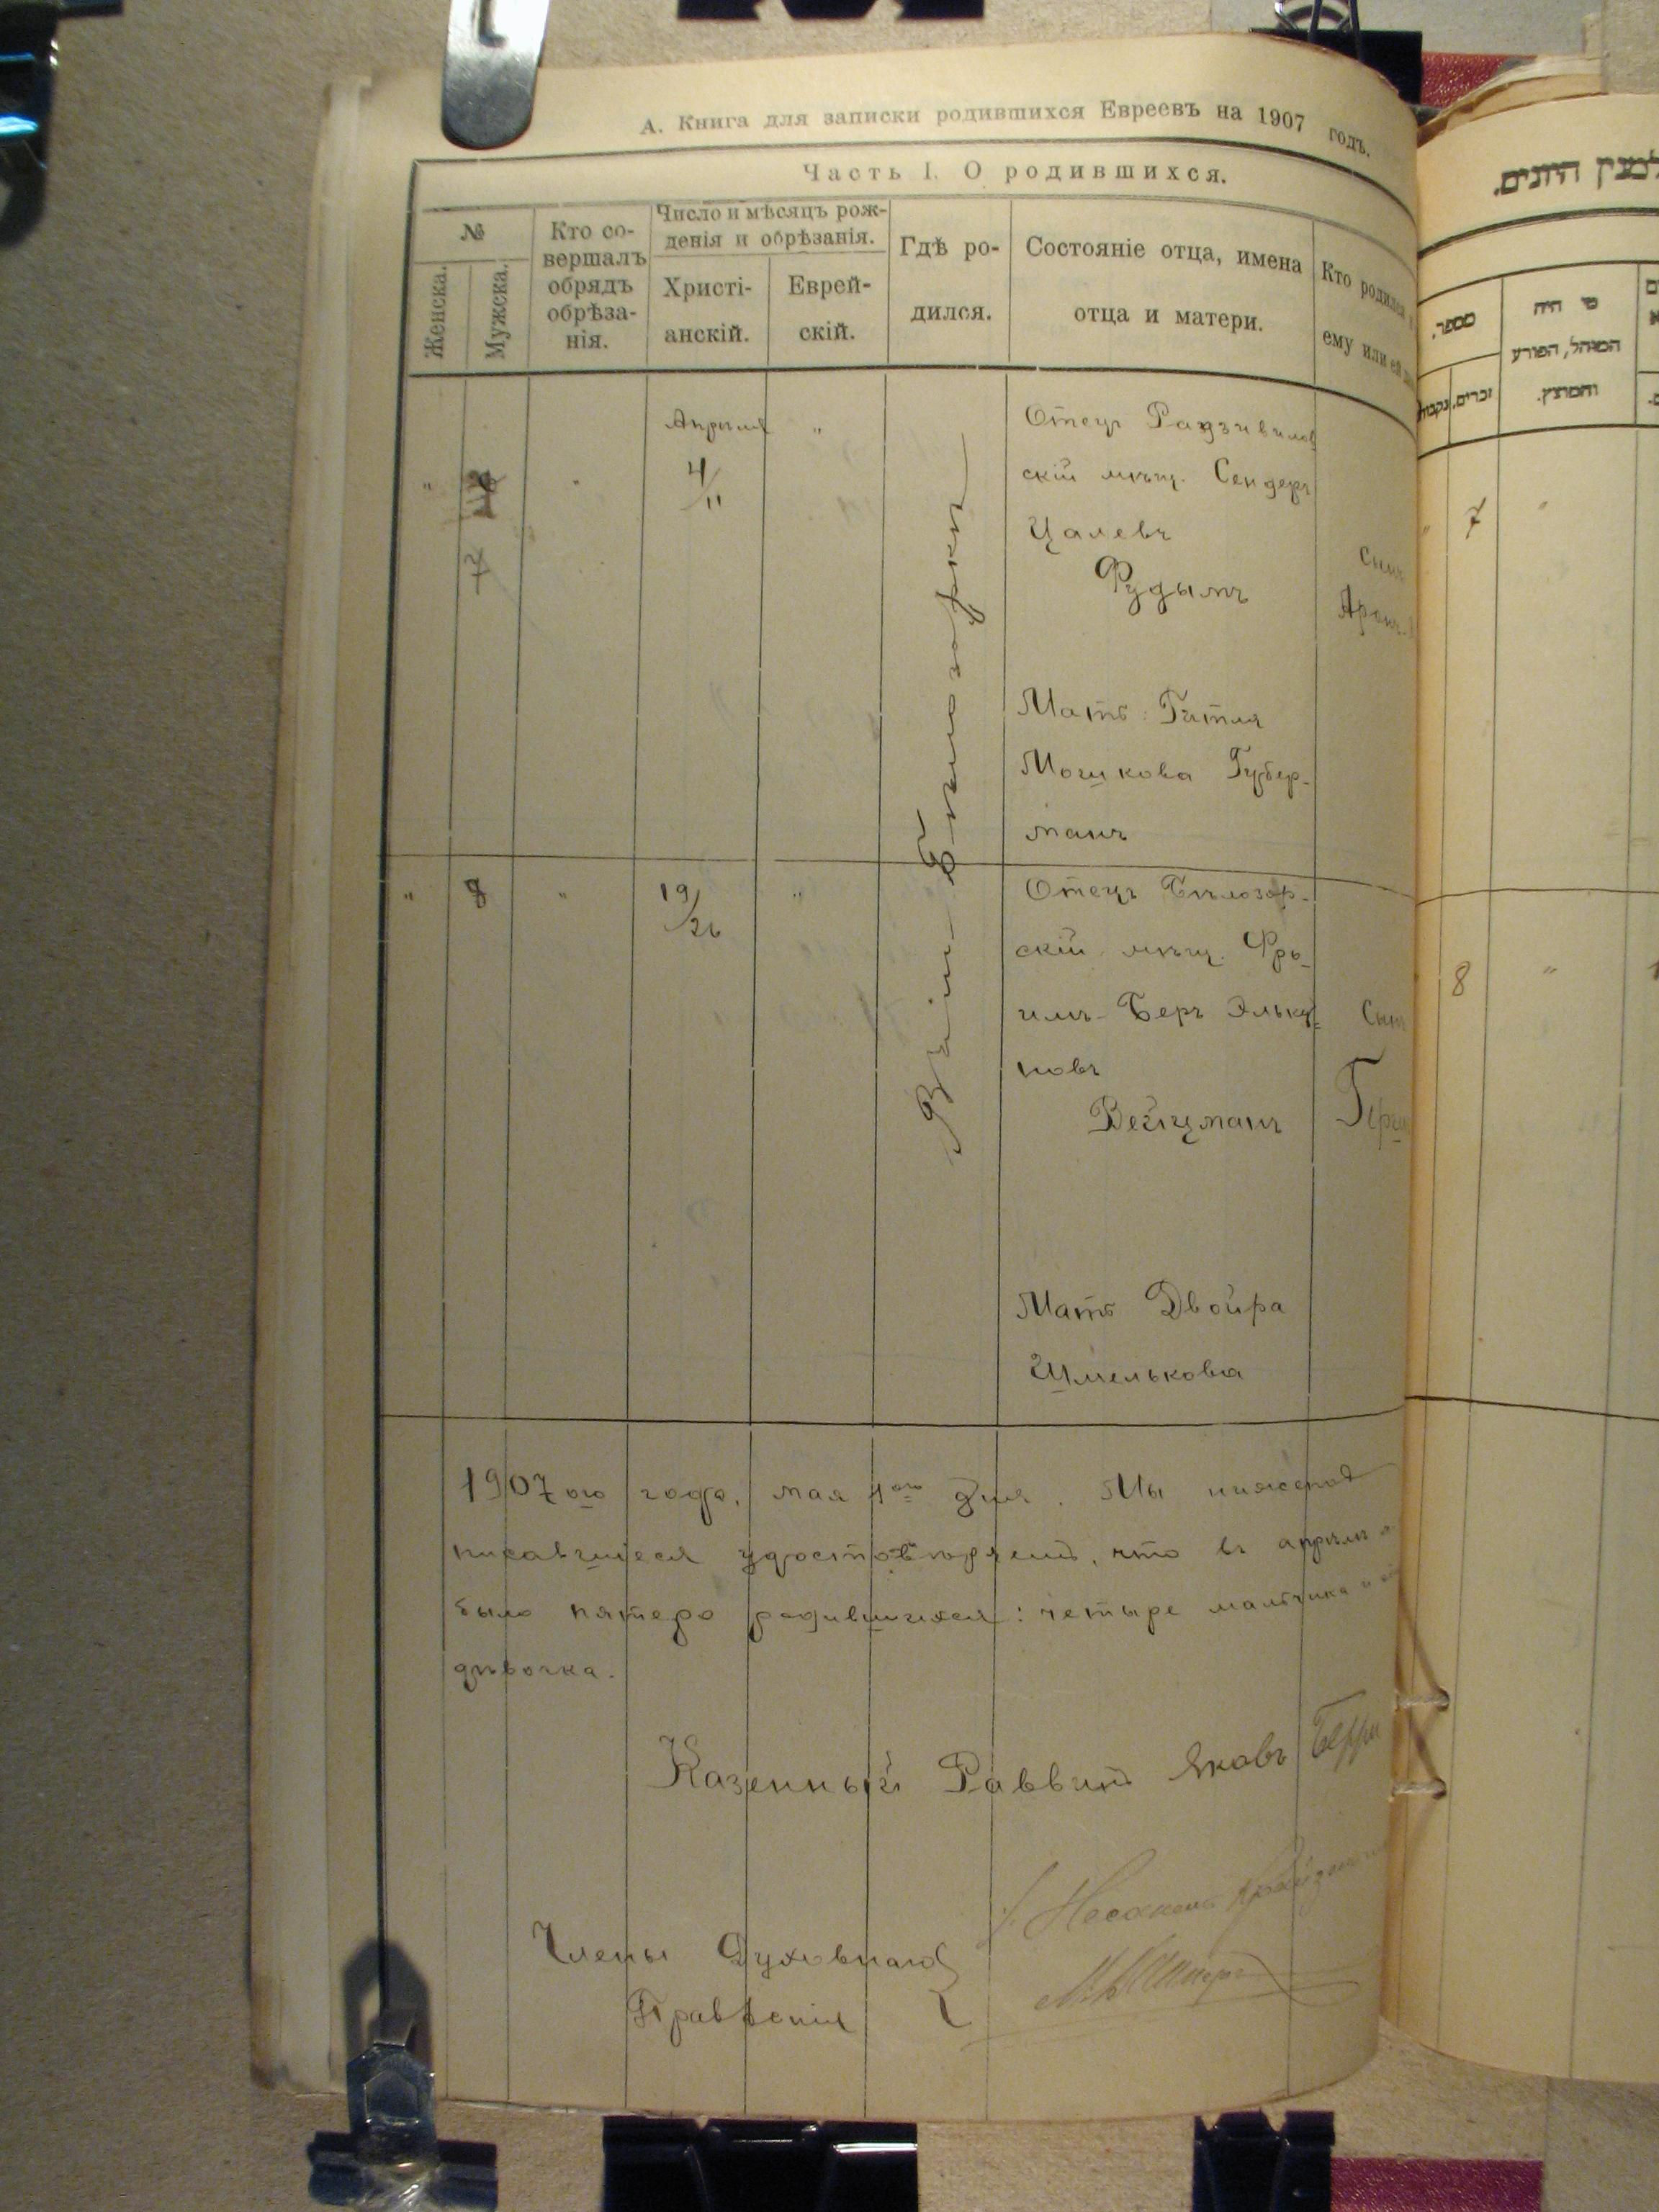 А. Книга для записки родившихся Евреевъ на 1907 годъ.
Часть I. О родившихся.
№
Женска.
Мужска.
Кто со-
вершалъ
обрядъ
обрѣза-
нія.
Число и мѣсяцъ рож-
денія и обрѣзанія.
Христі-
анскій.
Еврей-
скій.
Гдѣ ро-
дился.
Состояніе отца, имена
отца и матери.
Кто родился
ему или ей
"
7
"
Апрѣля
4/11
"
Отецъ Радзивилов
скій мѣщ. Сендеръ
Цалевъ
Рудымъ
Мать: Гитля
Мошкова Губер-
манъ
Сынъ
Аронъ
"
8
"
19/26
"
Бѣлозоркѣ
Отецъ Бѣлозор-
скій мѣщ. Фро-
имъ-Беръ Эльку-
новъ
Вейцманъ
Мать Двойра
Шмелькова
Сынъ
1907ого года, мая 1ого дня. Мы нижепод
писавшіеся удостовѣряемъ, что въ апрѣлѣ
было пятеро родившихся: четыре мальчика и
дѣвочка.
Казенный Раввинъ Яковъ
Члены Духовнаго
Правленія
מספר.
זכרים.
נקבות
מי היה
המוהל, הפורע
והמוצץ.
"
7
"
8
"